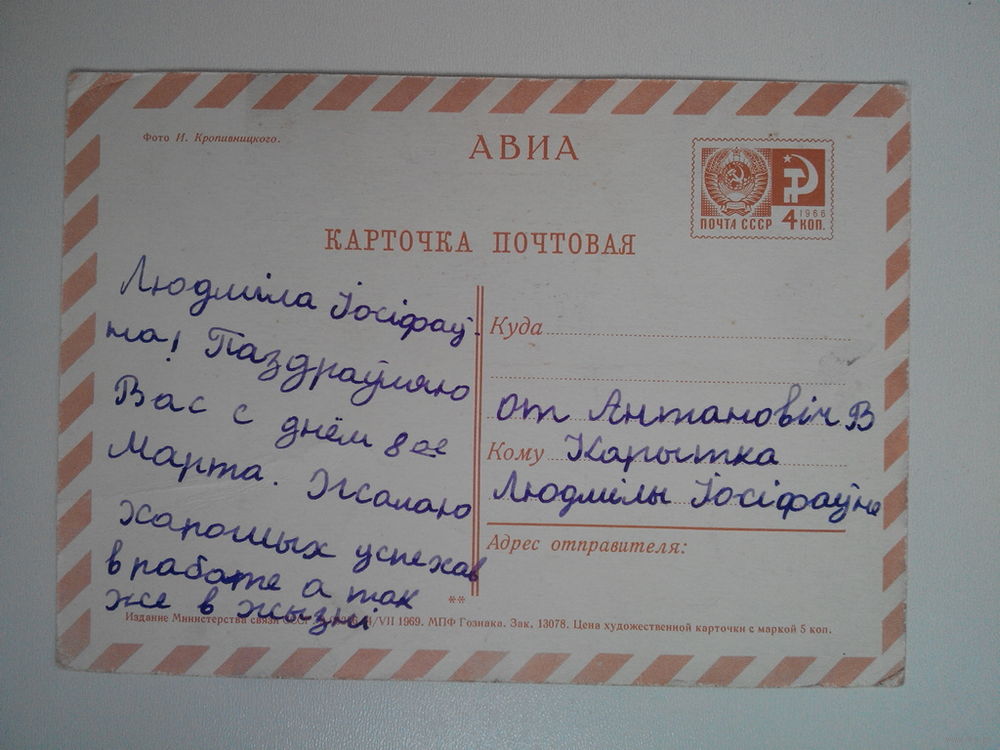 Фото И. Кропивницкого.
АВИА
ПОЧТА СССР
1966
4 КОП.
КАРТОЧКА ПОЧТОВАЯ
Людміла Іосіфаў-
на! Паздраўляю
Вас с днём 8ое
Марта. Жалаю
харошых успехав
в работе а так
же в жызні
Куда
от Антановіч В
Кому Карытка
Людмілы Іосіфаўне
Адрес отправителя:
**
Издание Министерства связи СССР /VII 1969. МПФ Гознака. Зак. 13078. Цена художественной карточки с маркой 5 коп.